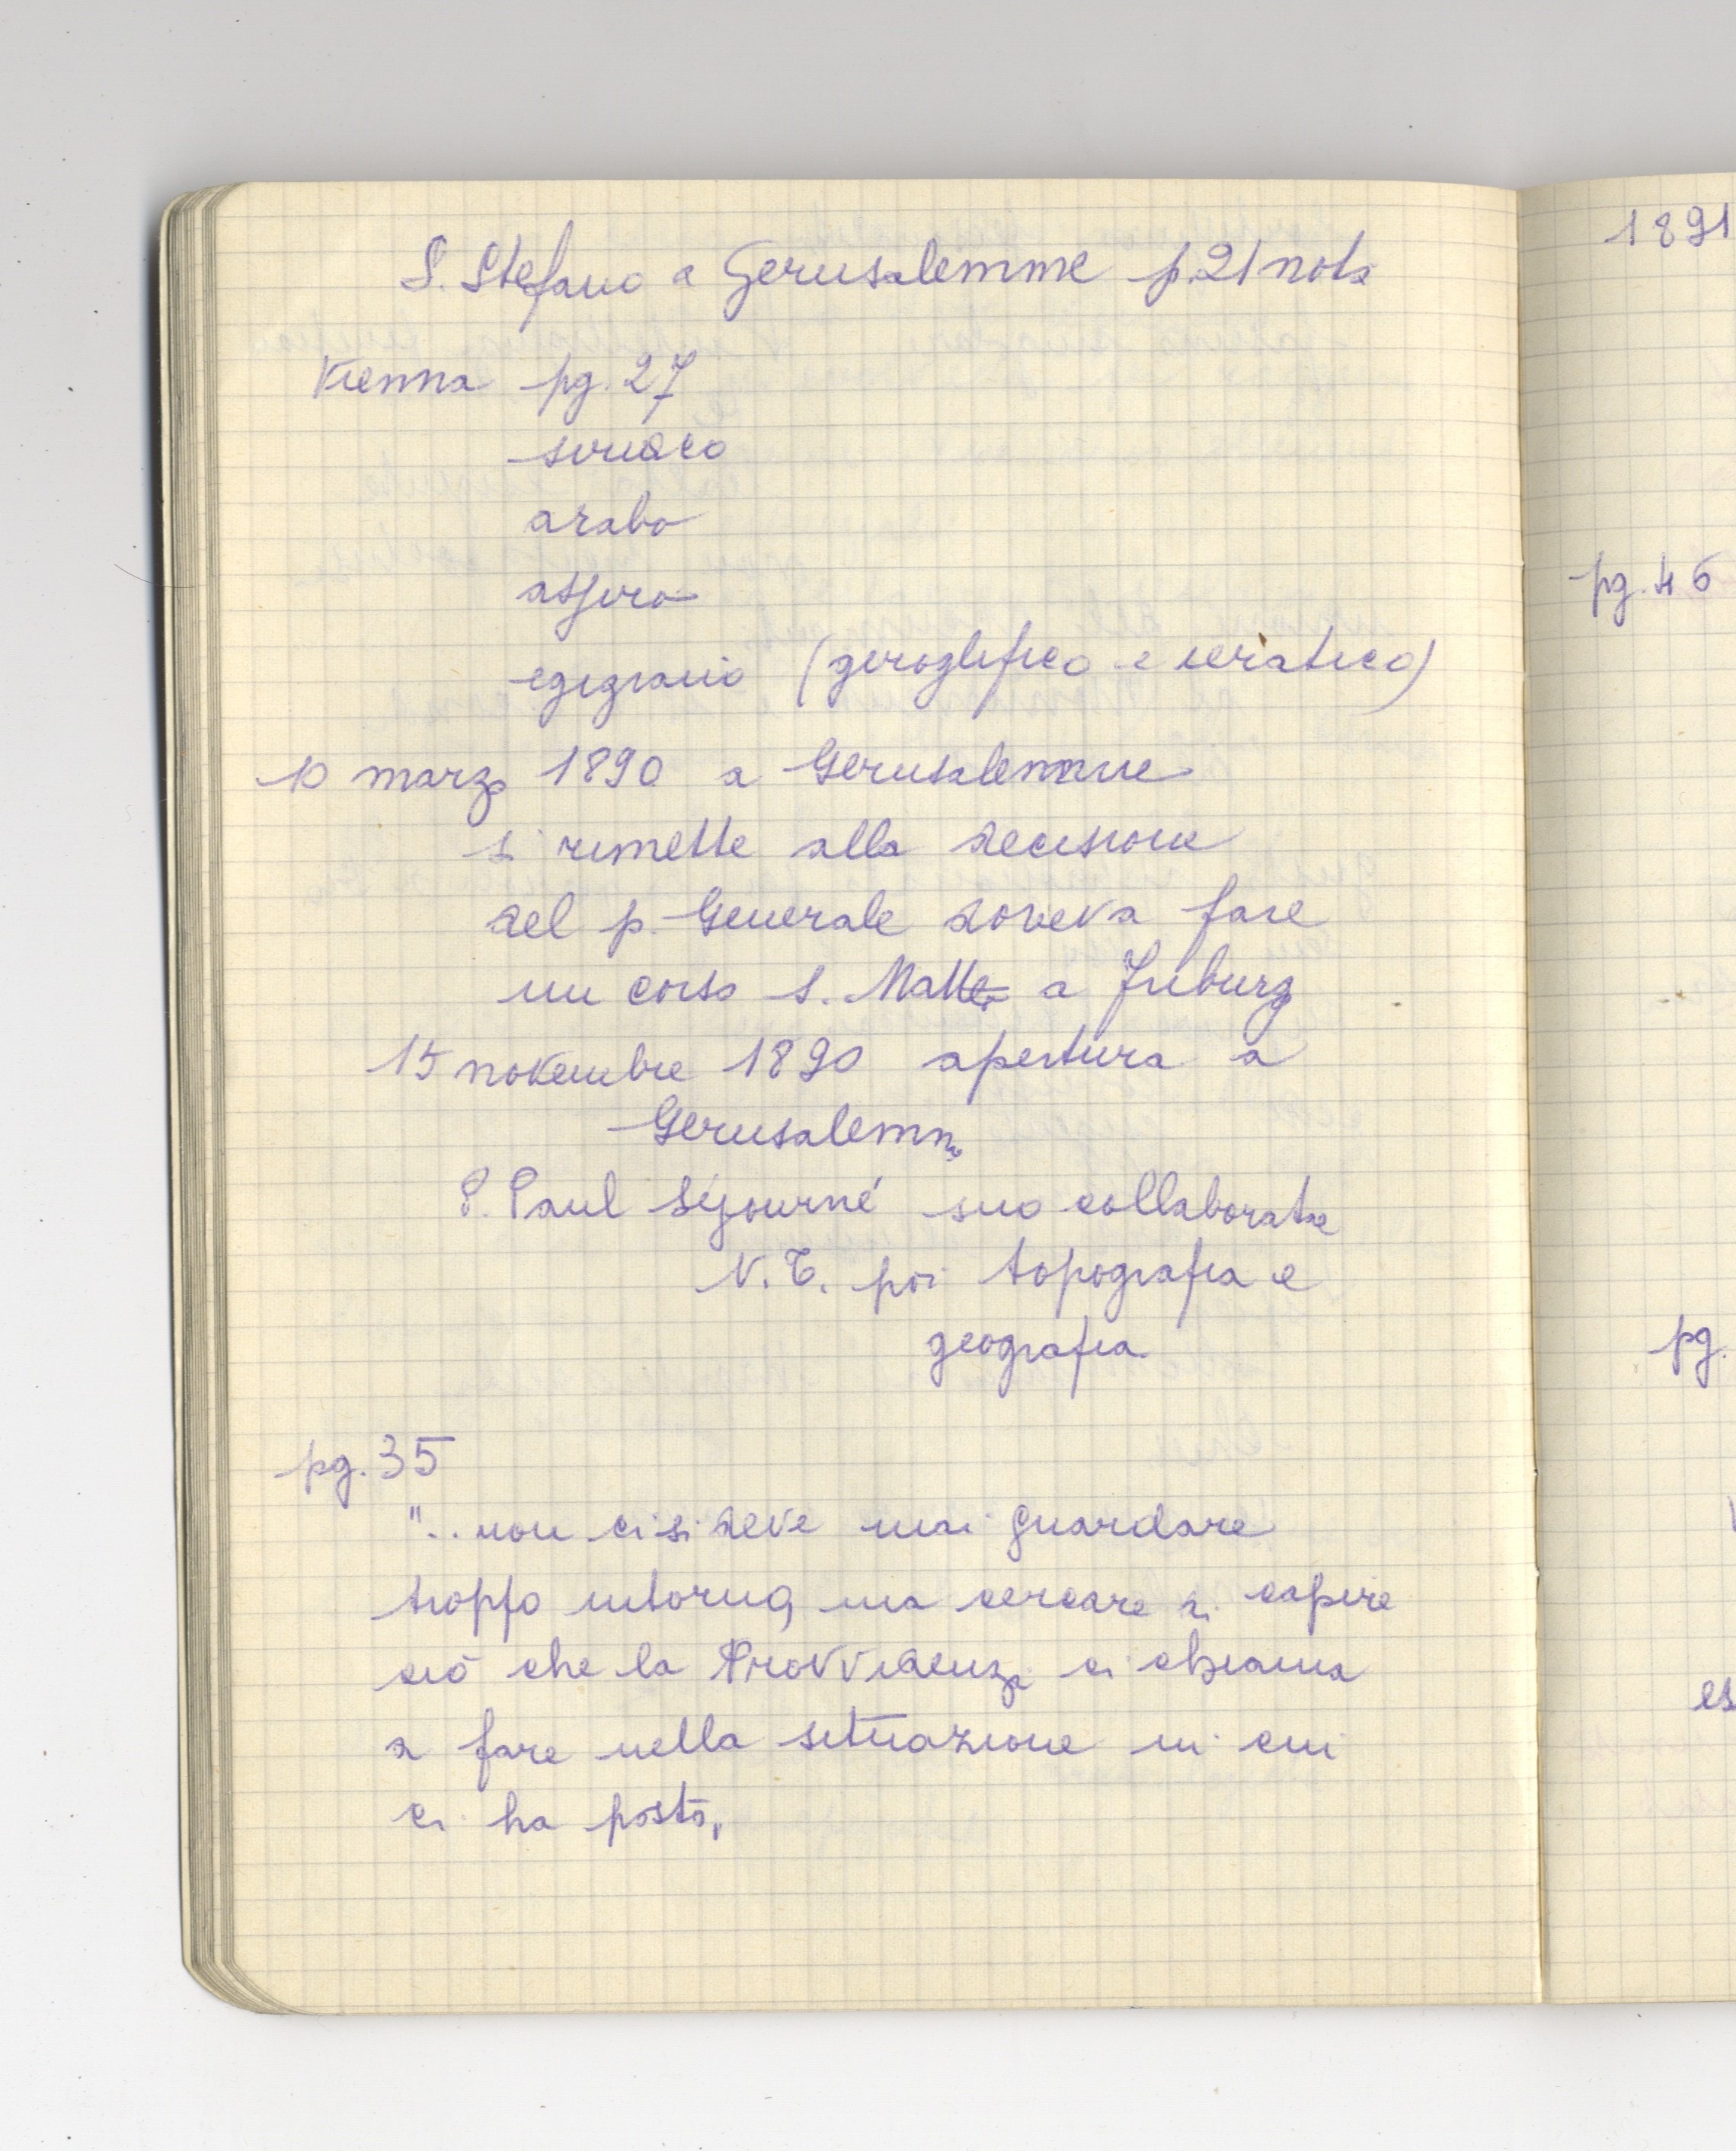 S. Stefano a Gerusalemme p. 21 nota
Vienna pg. 27
siriaco
arabo
assiro
egiziano (geroglifico e ieratico)
10 marzo 1890 a Gerusalemme
si rimette alla decisione
del p. Generale doveva fare
un corso S. Matteo a Friburg
15 novembre 1890 apertura a
Gerusalemme
P. Paul Séjourné suo collaboratore
N.T. poi topografia e
geografia
pg. 35
".. non ci si deve mai guardare
troppo intorno, ma cercare di capire
ciò che la Provvidenza ci chiama
a fare nella situazione in cui
ci ha posto„
1891
pg. 46
pg.
es